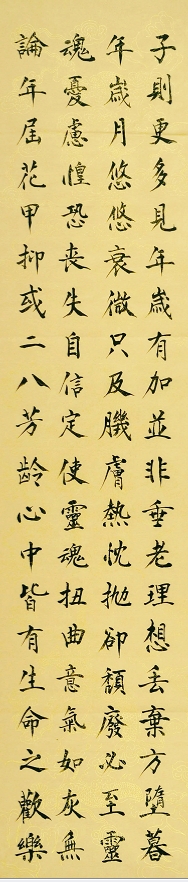 子則更多見年歲有加並非垂老理想丟棄方墮暮
年歲月悠悠衰微只及肌膚熱忱拋卻頹廢必至靈
魂憂慮惶恐喪失自信定使靈魂扭曲意氣如灰無
論年屆花甲抑或二八芳齡心中皆有生命之歡樂